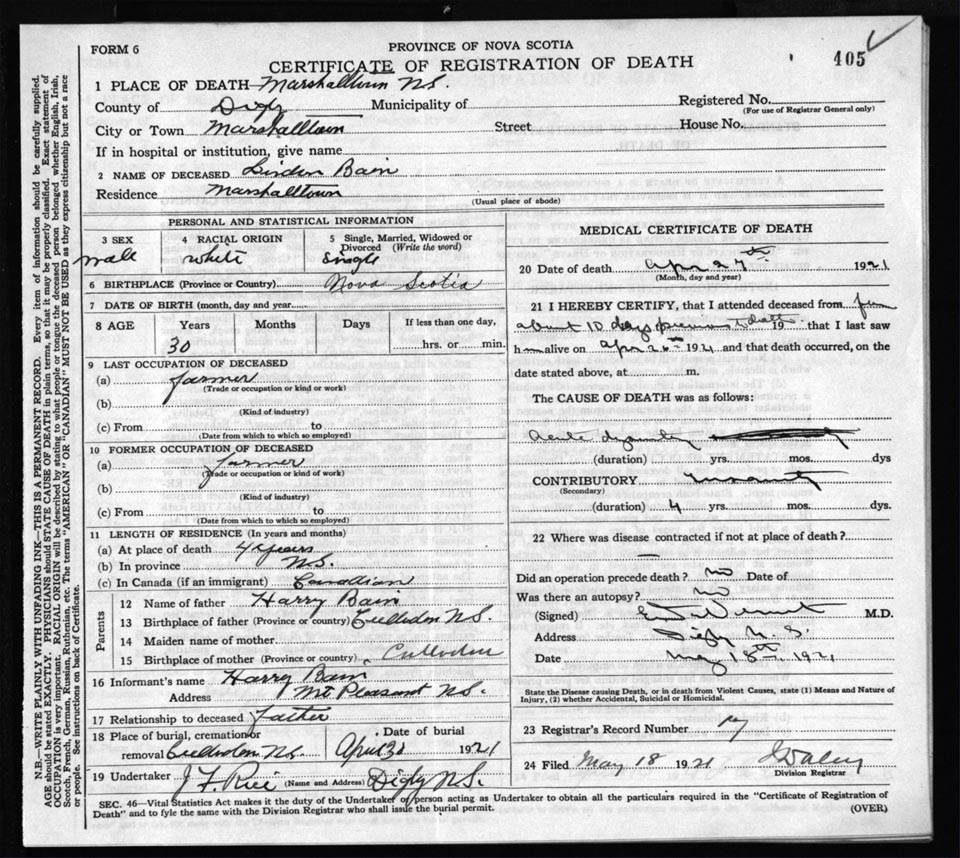 FORM 6
PROVINCE OF NOVA SCOTIA
CERTIFICATE OF REGISTRATION OF DEATH
405
1 PLACE OF DEATH Marshalltown N.S.
County of Digby Municipality of
Registered No.
(For use of Registrar General only)
City or Town Marshalltown Street House No.
If in hospital or institution, give name
2 NAME OF DECEASED Linden Bain
Residence Marshalltown
(Usual place of abode)
PERSONAL AND STATISTICAL INFORMATION
3 SEX 4 RACIAL ORIGIN 5 Single, Married, Widowed or Divorced (Write the word)
male white single
6 BIRTHPLACE (Province or Country) Nova Scotia
7 DATE OF BIRTH (month, day and year)
8 AGE Years Months Days If less than one day,
30 hrs. or min.
9 LAST OCCUPATION OF DECEASED
(a) farmer
(Trade or occupation or kind or work)
(b)
(Kind of industry)
(c) From to
(Date from which to which so employed)
10 FORMER OCCUPATION OF DECEASED
(a) farmer
(Trade or occupation or kind of work)
(b)
(Kind of industry)
(c) From to
(Date from which to which so employed)
11 LENGTH OF RESIDENCE (In years and months)
(a) At place of death 4 years
(b) In province N.S.
(c) In Canada (if an immigrant) Canadian
Parents
12 Name of father Harry Bain
13 Birthplace of father (Province or country) Culloden N.S.
14 Maiden name of mother
15 Birthplace of mother (Province or country) Culloden
16 Informant's name Harry Bain
Address Mt Pleasant N.S.
17 Relationship to deceased father
18 Place of burial, cremation or removal Culloden N.S. Date of burial April 30 1921
19 Undertaker J. F. Rice (Name and Address) Digby N.S.
MEDICAL CERTIFICATE OF DEATH
20 Date of death Apr 27th 1921
(Month, day and year)
21 I HEREBY CERTIFY, that I attended deceased from from
about 10 days previous to death 19 that I last saw
him alive on Apr 26th 1921 and that death occurred, on the
date stated above, at m.
The CAUSE OF DEATH was as follows:
Acute dysentery
(duration) yrs. mos. dys
CONTRIBUTORY Insanity
(Secondary)
(duration) 4 yrs. mos. dys.
22 Where was disease contracted if not at place of death?
—
Did an operation precede death? no Date of
Was there an autopsy? no
(Signed) M.D.
Address Digby N.S.
Date May 18th, 1921
State the Disease causing Death, or in death from Violent Causes, state (1) Means and Nature of
Injury, (2) whether Accidental, Suicidal or Homicidal.
23 Registrar's Record Number
24 Filed May 18 1921
Division Registrar
SEC. 46—Vital Statistics Act makes it the duty of the Undertaker or person acting as Undertaker to obtain all the particulars required in the "Certificate of Registration of
Death" and to fyle the same with the Division Registrar who shall issue the burial permit.
(OVER)
N.B.—WRITE PLAINLY WITH UNFADING INK—THIS IS A PERMANENT RECORD. Every item of information should be carefully supplied.
AGE should be stated EXACTLY. PHYSICIANS should STATE CAUSE OF DEATH in plain terms, so that it may be properly classified. Exact statement of
OCCUPATION is very important. RACIAL ORIGIN will be described by stating to what people or tongue the deceased person belonged whether English, Irish,
Scotch, French, German, Russian, Ruthenian, etc. The terms "AMERICAN" OR "CANADIAN" MUST NOT BE USED as they express citizenship but not a race
or people. See instructions on back of Certificate.